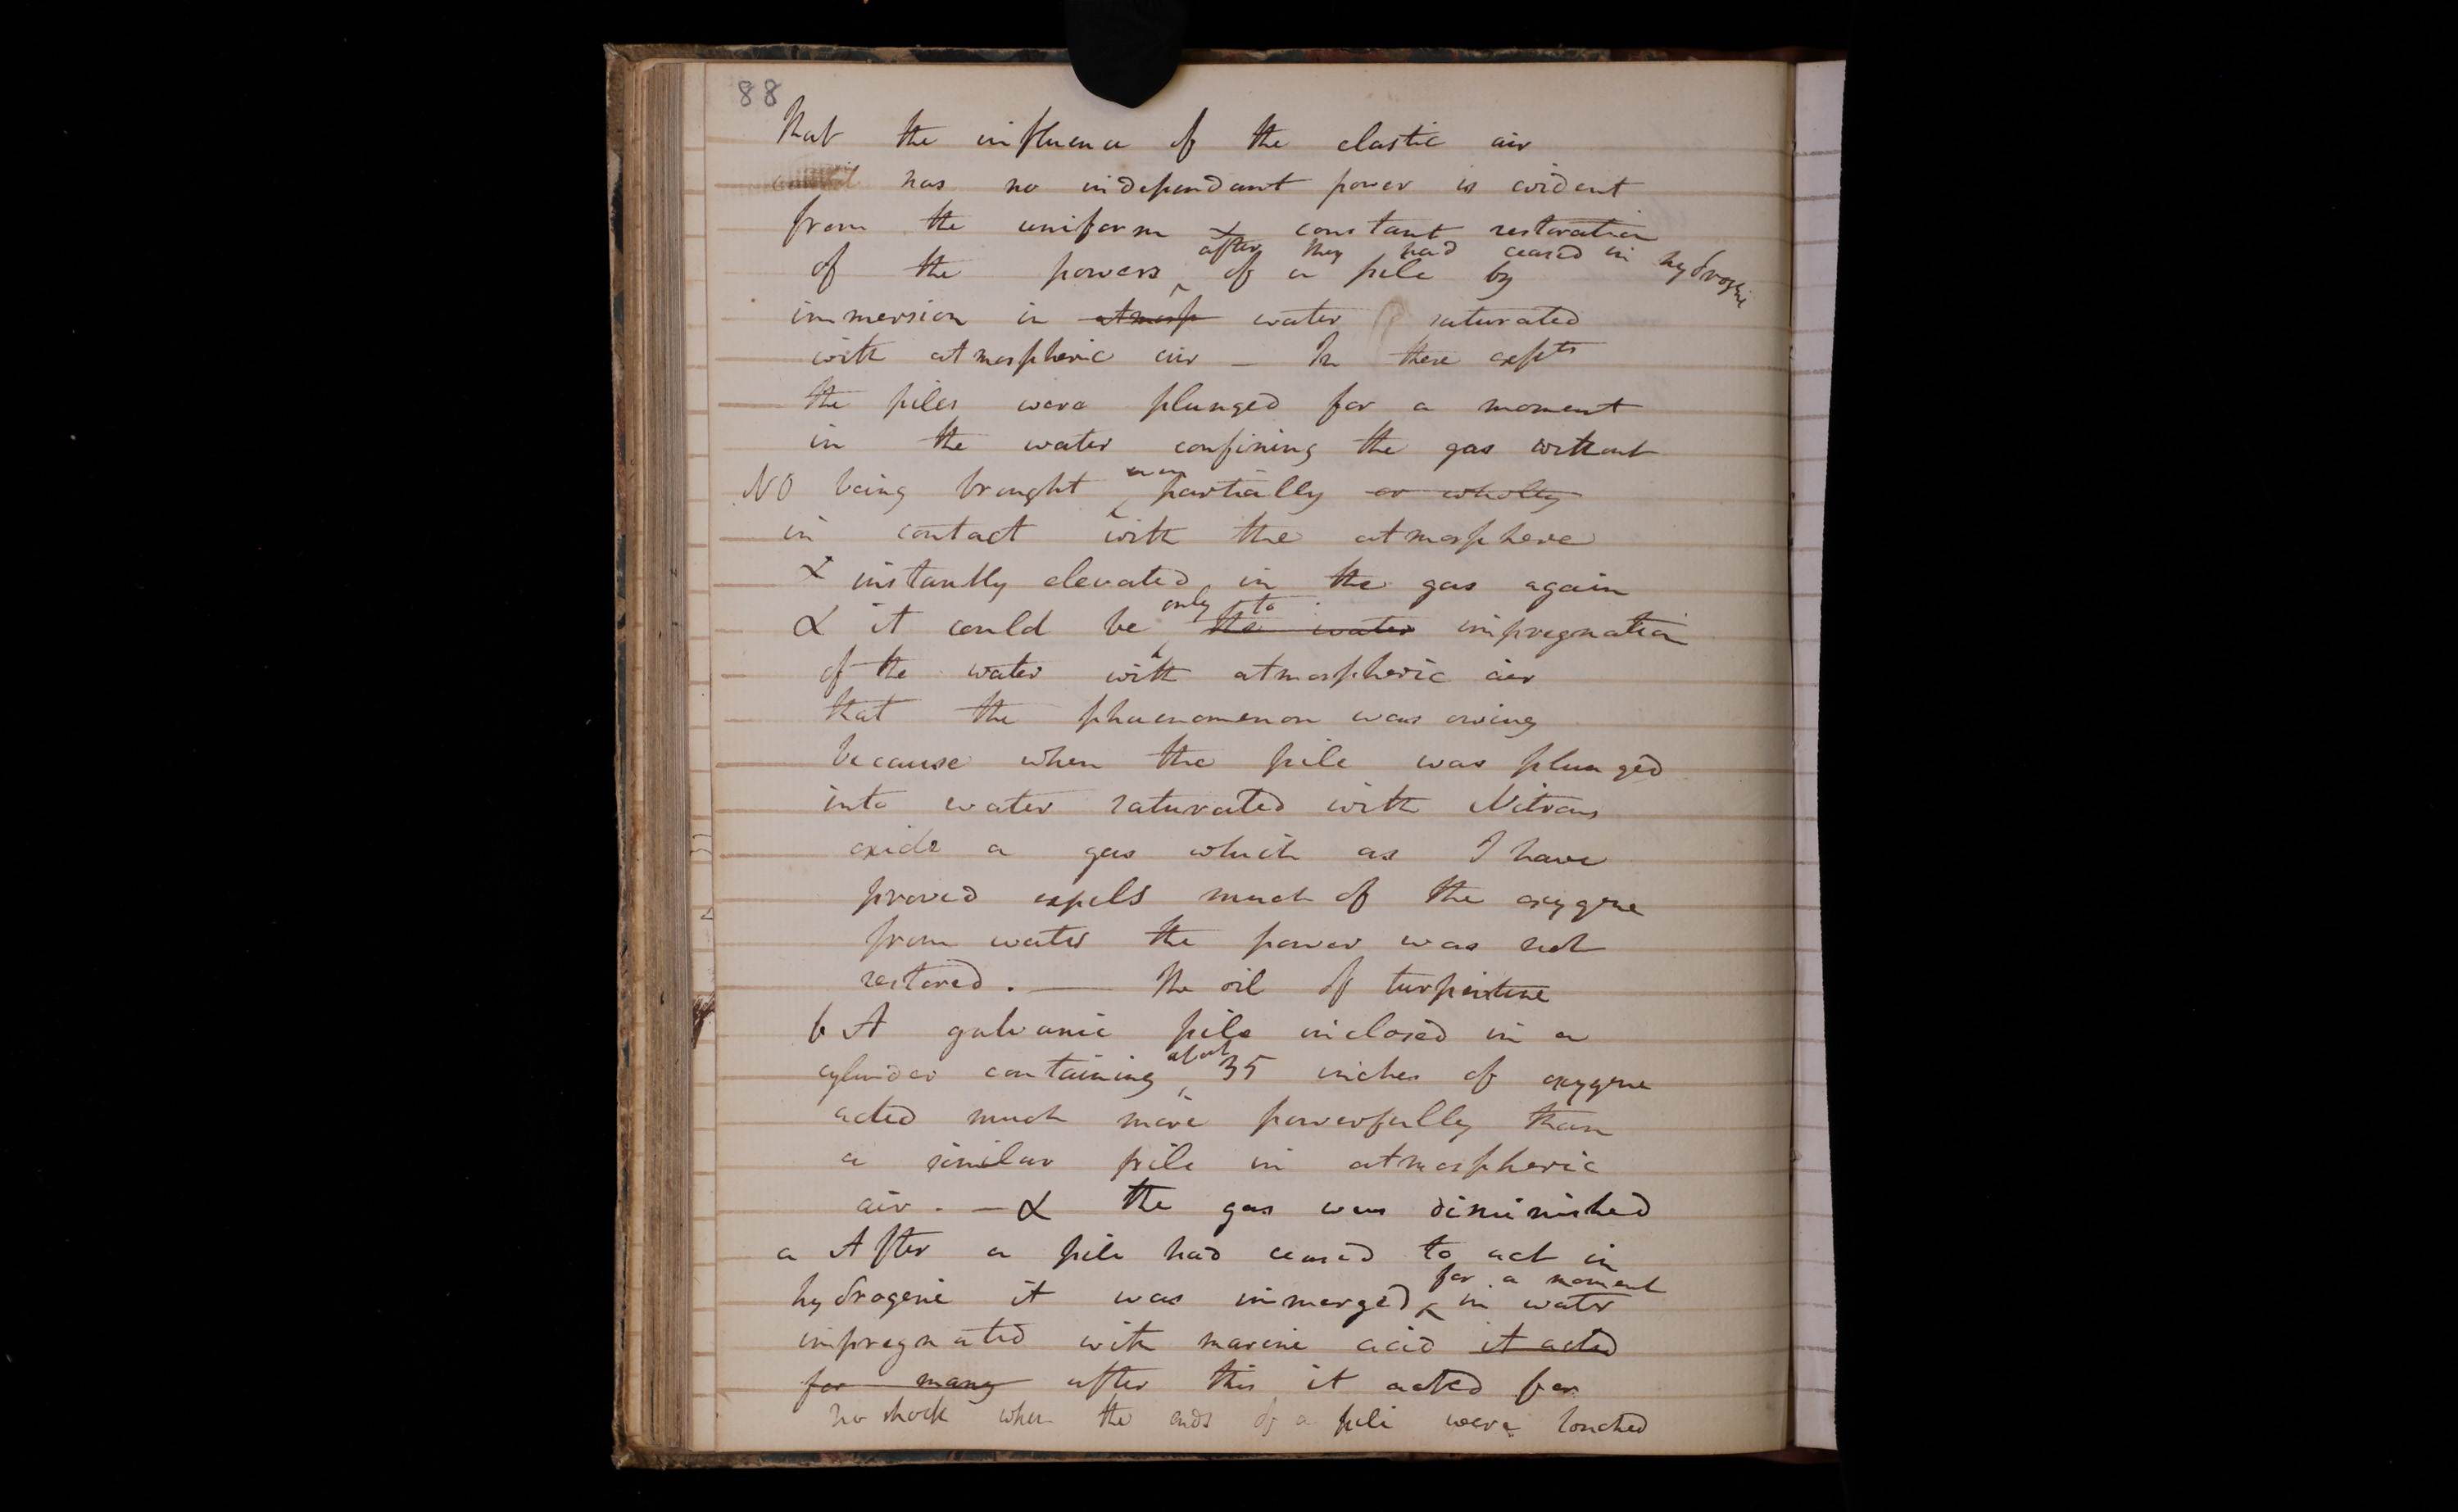 88
that the influence of the elastic air
has no independant power is evident
from the uniform & constant restoration
after they had ceased in hydrogene
of the powers of a pile by
immersion in atmosp water saturated
with atmospheric air – In these expts
the piles were plunged for a moment
in the water confining the gas without
NO being brought even partially or wholly
in contact with the atmosphere
& instantly elevated in the gas again
only to
& it could be the water impregnation
of the water with atmospheric air
that the phaenomenon was owing
because when the pile was plunged
into water saturated with Nitrous
oxide a gas which as I have
proved expels much of the oxygene
from water the power was not
restored. — The oil of turpentine
b A galvanic pile inclosed in a
about
cylinder containing 35 inches of oxygene
acted much more powerfully than
a similar pile in atmospheric
air. – & the gas was diminished
a After a pile had ceased to act in
for a moment
hydrogene it was immerged in water
impregnated with marine acid it acted
for many after this it acted for
no shock when the ends of a pile were touched